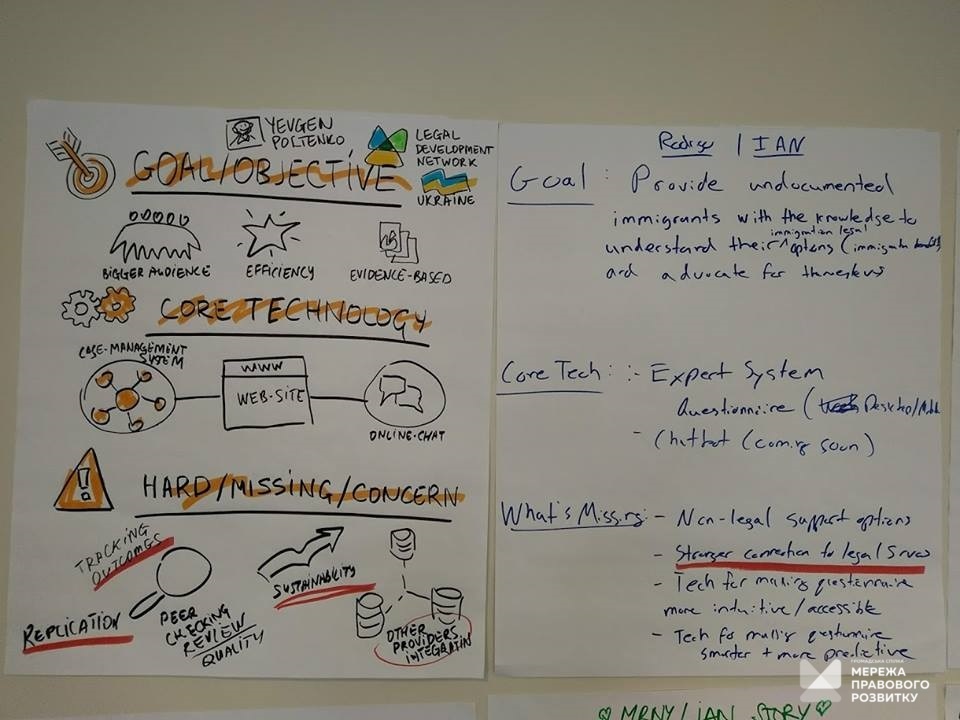 YEVGEN
POLTENKO
LEGAL
DEVELOPMENT
NETWORK
UKRAINE
GOAL/OBJECTIVE
BIGGER AUDIENCE
EFFICIENCY
EVIDENCE-BASED
CORE TECHNOLOGY
CASE-MANAGEMENT
SYSTEM
WWW
WEB-SITE
ONLINE-CHAT
HARD/MISSING/CONCERN
TRACKING
OUTCOMES
REPLICATION
PEER
CHECKING
REVIEW
QUALITY
SUSTAINABILITY
OTHER
PROVIDERS
INTEGRATION
/ IAN
Goal : Provide undocumented
immigrants with the knowledge to
immigration legal
understand their options (immigration benefits)
and advocate for themselves
Core Tech : - Expert System
Questionnaire ( Desktop/Mobile
- Chatbot (coming soon)
What's Missing: - Non-legal support options
- Stronger connection to legal Srvcs
- Tech for making questionnaire
more intuitive/accessible
- Tech for making questionnaire
smarter + more predictive
ГРОМАДСЬКА СПІЛКА
МЕРЕЖА
ПРАВОВОГО
РОЗВИТКУ
♡ MRNY / IAN STORY ♡